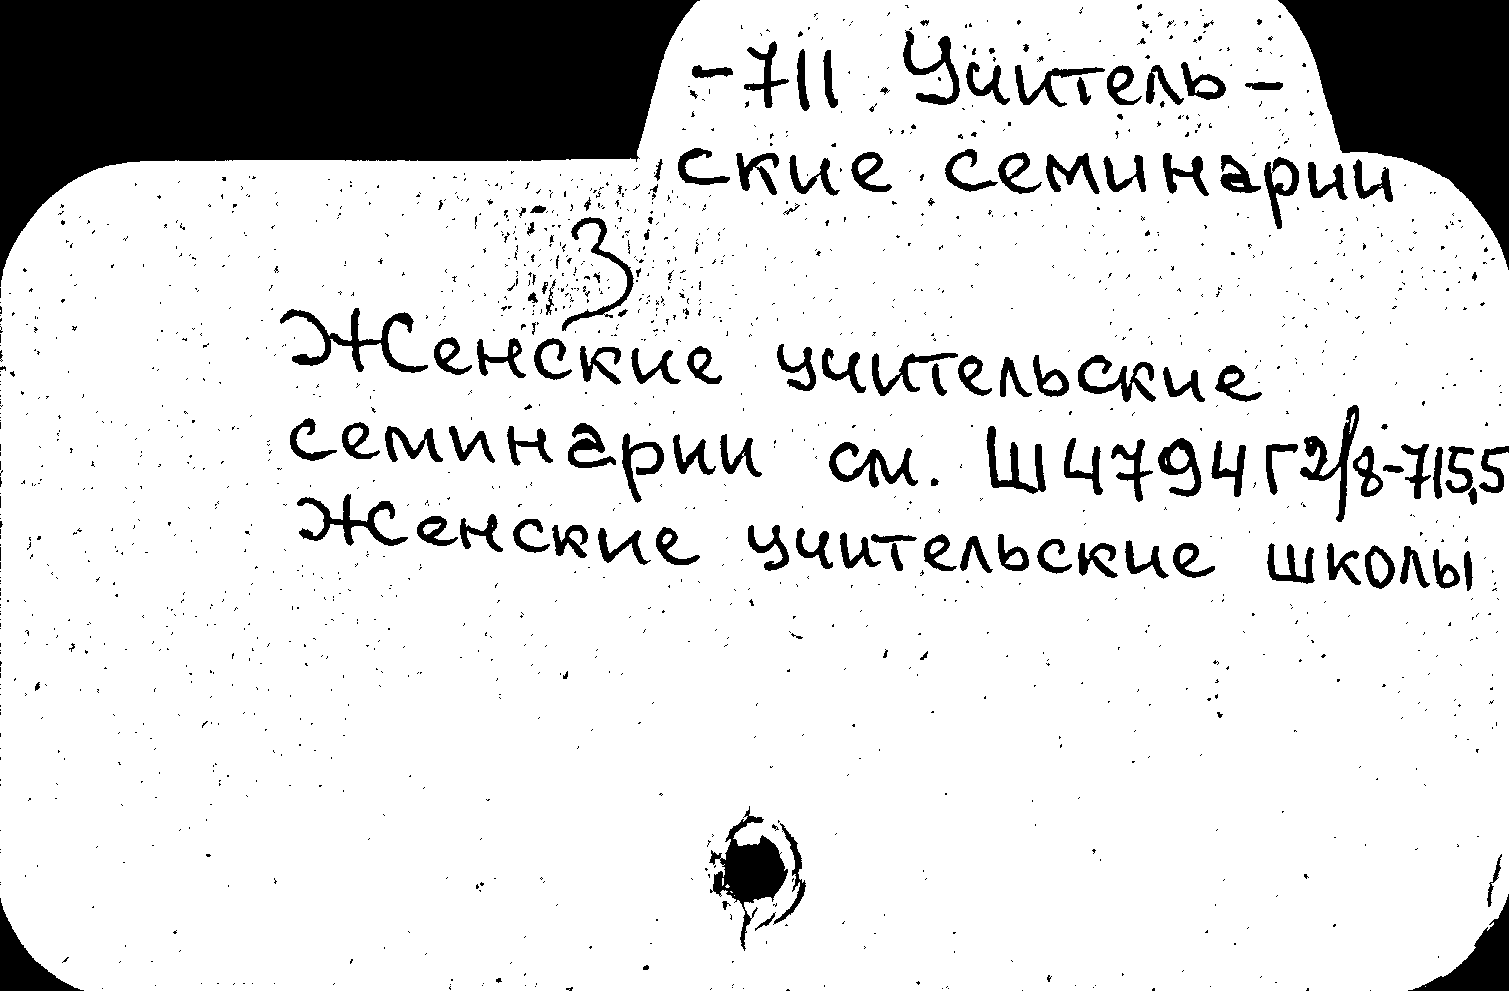 -711 Учитель-
ские семинарии
3
Женские учительские
семинарии см. Ш4794Г2/8-715,5
Женские учительские школы